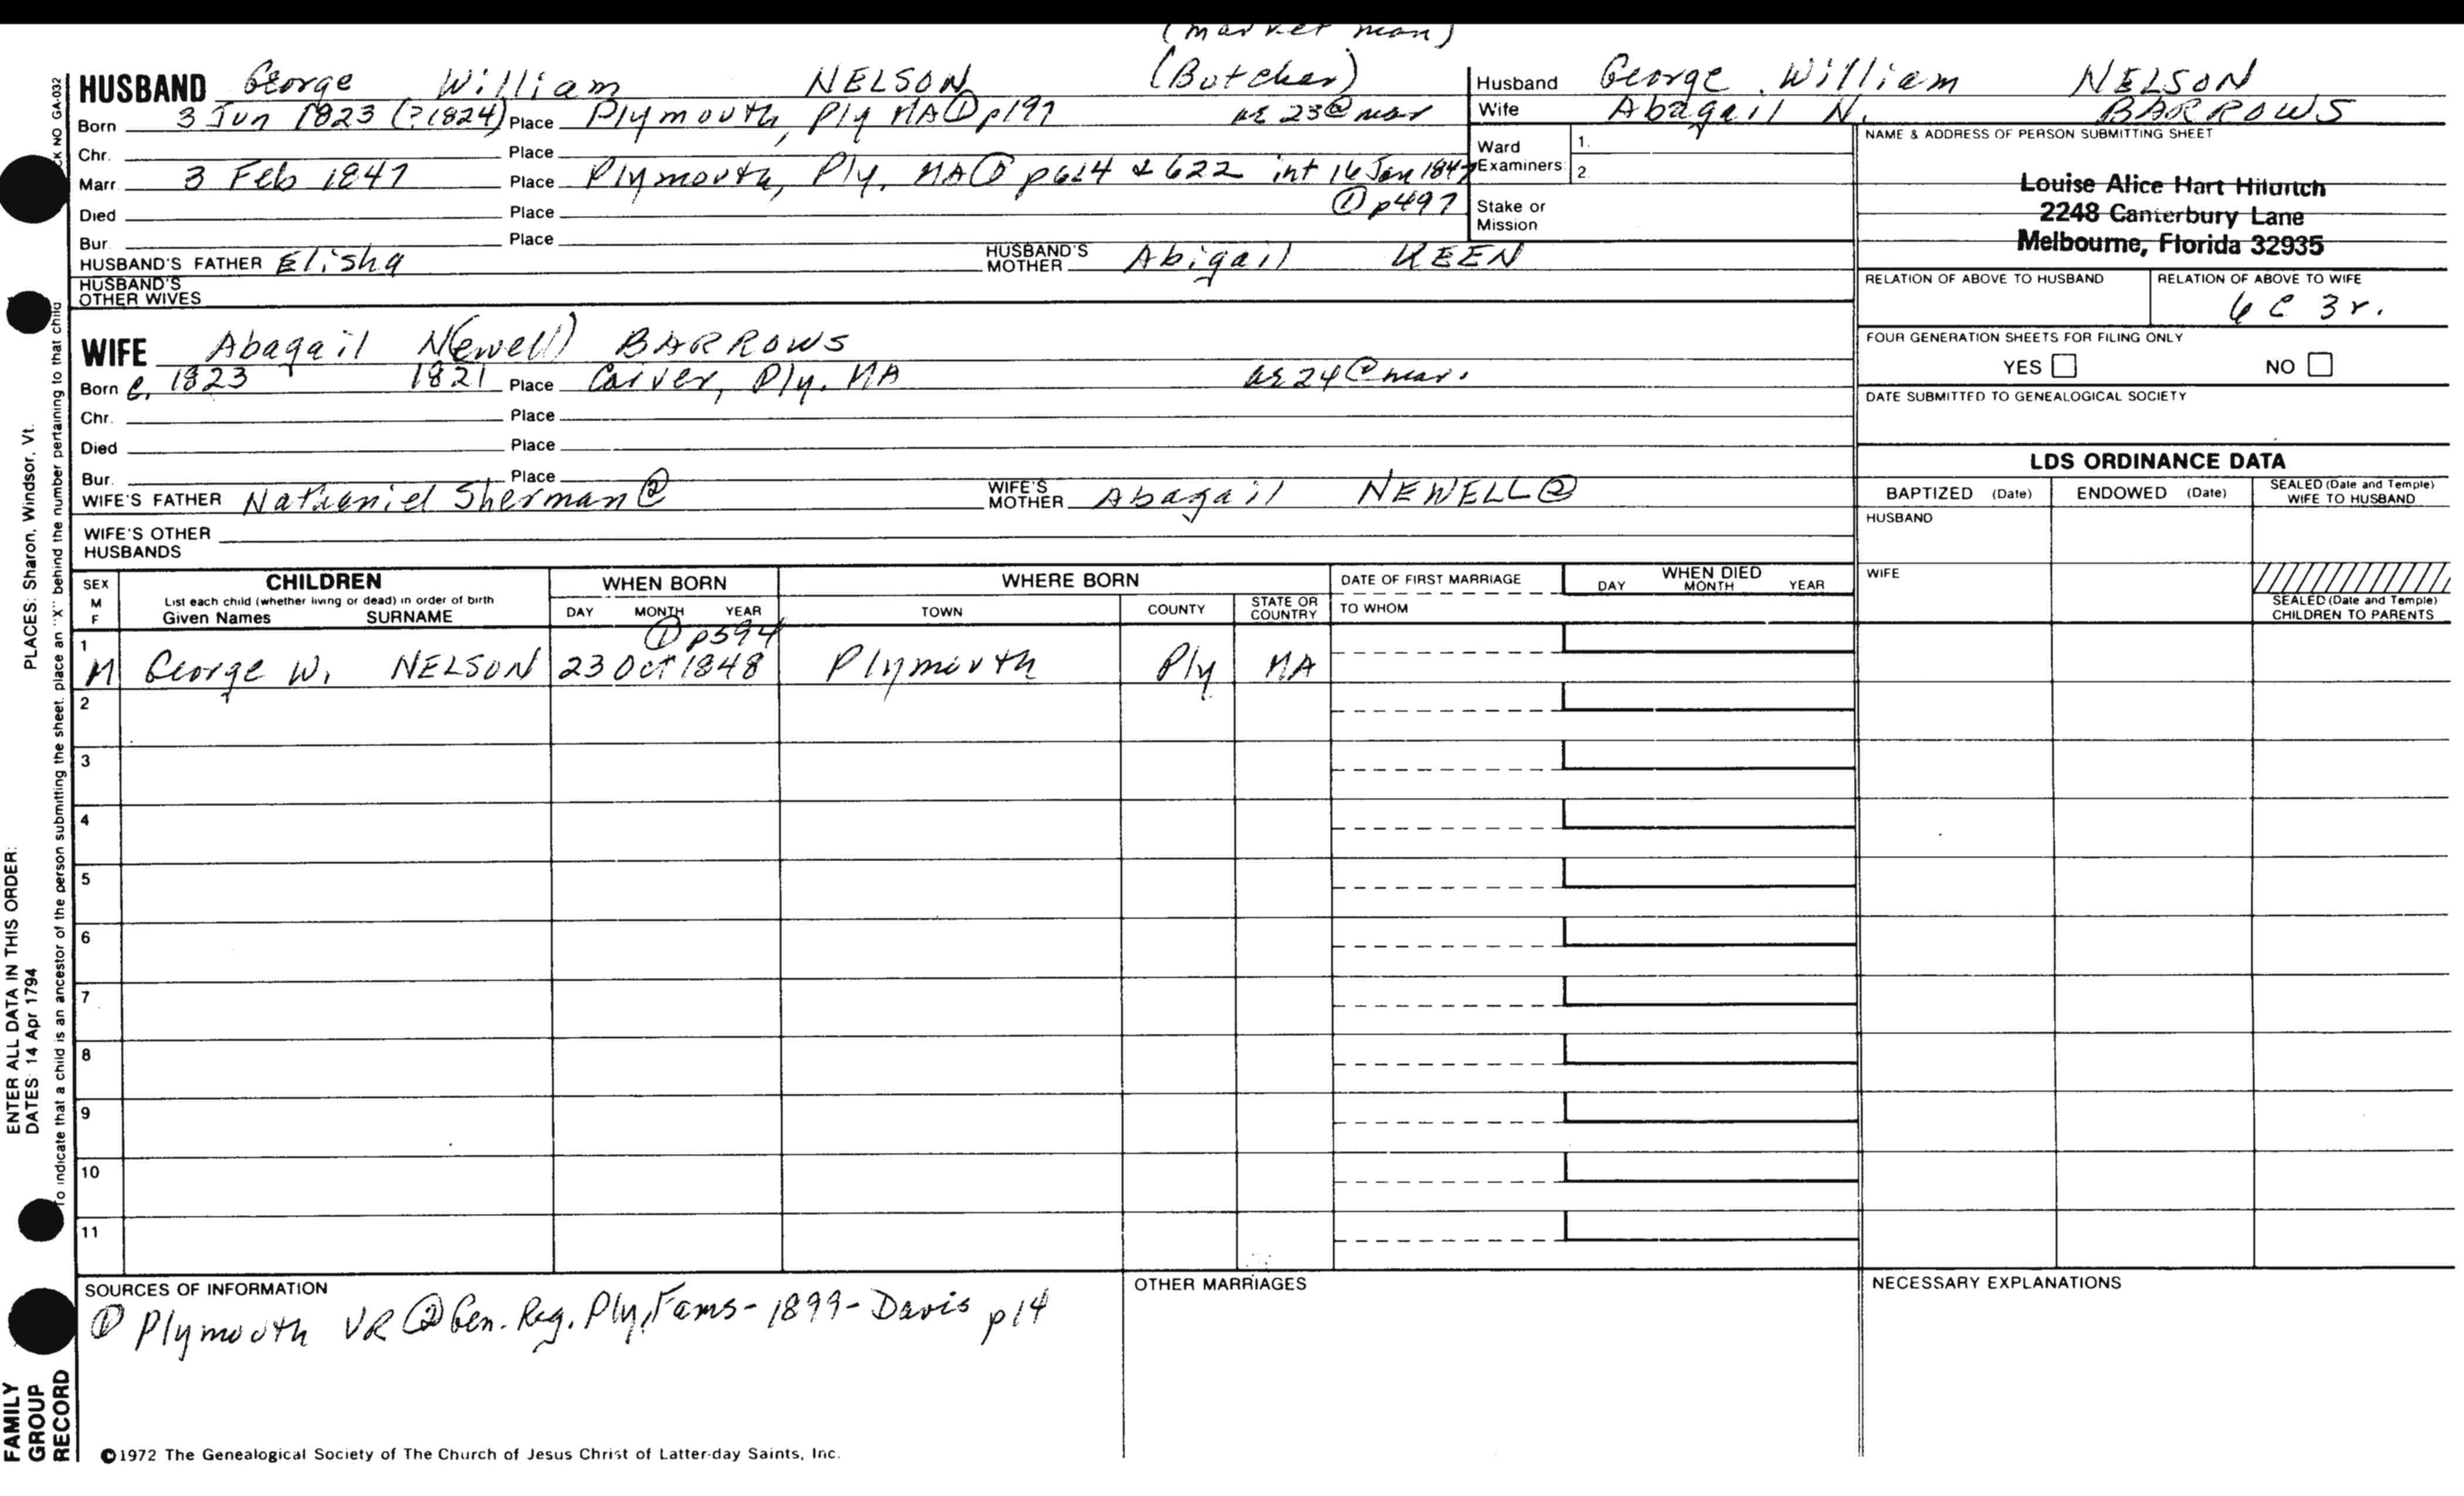 (market man)
HUSBAND George William NELSON (Butcher)
Born 3 Jun 1823 (?1824) Place Plymouth, Ply MA ① p197 as 23 @ mar
Chr. Place
Marr. 3 Feb 1847 Place Plymouth, Ply. MA ① p624 & 622 int 16 Jan 1847
Died Place ① p497
Bur. Place
HUSBAND'S FATHER Elisha HUSBAND'S MOTHER Abigail KEEN
HUSBAND'S OTHER WIVES
WIFE Abagail N(ewell) BARROWS
Born c. 1823 1821 Place Carver, Ply. MA as 24 @ mar.
Chr. Place
Died Place
Bur. Place
WIFE'S FATHER Nathaniel Sherman ② WIFE'S MOTHER Abagail NEWELL ②
WIFE'S OTHER HUSBANDS
Husband George William NELSON
Wife Abagail N. BARROWS
Ward Examiners: 1.
2.
Stake or Mission
NAME & ADDRESS OF PERSON SUBMITTING SHEET
Louise Alice Hart
2248 Canterbury Lane
Melbourne, Florida 32935
RELATION OF ABOVE TO HUSBAND RELATION OF ABOVE TO WIFE
6 C 3 r.
FOUR GENERATION SHEETS FOR FILING ONLY
YES NO
DATE SUBMITTED TO GENEALOGICAL SOCIETY
LDS ORDINANCE DATA
BAPTIZED (Date) ENDOWED (Date) SEALED (Date and Temple) WIFE TO HUSBAND
HUSBAND
WIFE
SEALED (Date and Temple) CHILDREN TO PARENTS
SEX M F CHILDREN List each child (whether living or dead) in order of birth Given Names SURNAME WHEN BORN DAY MONTH YEAR WHERE BORN TOWN COUNTY STATE OR COUNTRY DATE OF FIRST MARRIAGE TO WHOM WHEN DIED DAY MONTH YEAR
① p594
1 M George W. NELSON 23 Oct 1848 Plymouth Ply MA
2
3
4
5
6
7
8
9
10
11
SOURCES OF INFORMATION
① Plymouth VR ② Gen. Reg. Ply. Fams - 1899 - Davis p14
OTHER MARRIAGES
NECESSARY EXPLANATIONS
©1972 The Genealogical Society of The Church of Jesus Christ of Latter-day Saints, Inc.
FAMILY GROUP RECORD
ENTER ALL DATA IN THIS ORDER:
DATES: 14 Apr 1794 PLACES: Sharon, Windsor, Vt.
To indicate that a child is an ancestor of the person submitting the sheet, place an "X" behind the number pertaining to that child
CK NO GA-032